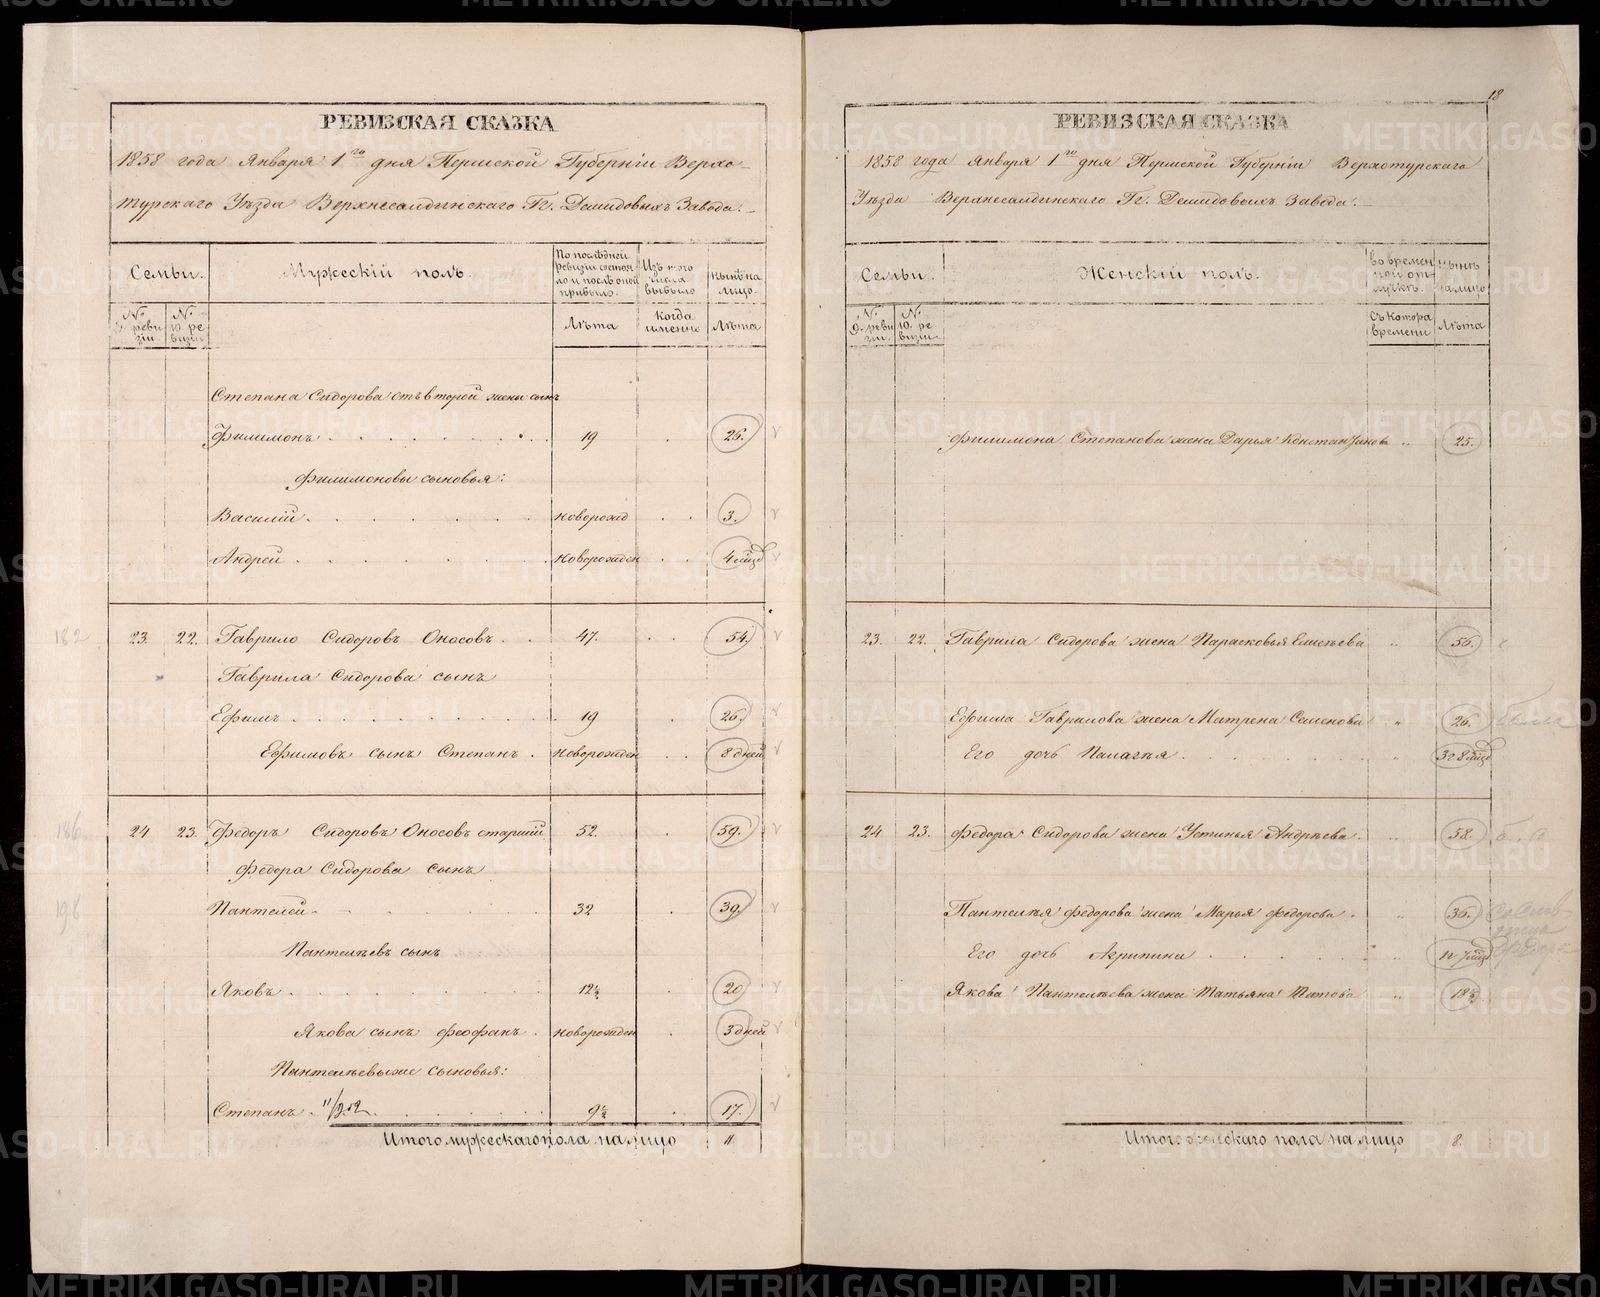 РЕВИЗСКАЯ СКАЗКА
1858 года Января 1го дня Пермской Губернiи Верхо-
турскаго Уѣзда Верхнесалдинскаго Гг. Демидовыхъ Завода.
Семьи.
Мужескiй полъ.
По послѣдней ревизiи состояло и послѣ оной прибыло.
Изъ того числа выбыло
нынѣ на лицо.
№ 9. ревизiи
№ 10. ревизiи
Лѣта
Когда именно
Лѣта
Степана Сидорова отъ второй жены сынъ
Филимонъ 19 26.
Филимоновы сыновья:
Василiй новорожд 3.
Андрей новорожден 4 мцд
182 23. 22. Гаврило Сидоровъ Оносовъ 47. 54.
Гаврила Сидорова сынъ
Ефимъ 19 26.
Ефимовъ сынъ Степанъ новорожден 8 дней
186. 24 23. Федоръ Сидоровъ Оносовъ старшiй 52. 59.
Федора Сидорова сынъ
196 Пантелей 32 39.
Пантелѣевъ сынъ
Яковъ 12½ 20
Якова сынъ Феофанъ новорожден 3 дней
Пантелѣевыже сыновья:
Степанъ 9½ 17.
Итого мужескаго пола на лицо 11
18
РЕВИЗСКАЯ СКАЗКА
1858 года Января 1го дня Пермской Губернiи Верхотурскаго
Уѣзда Верхнесалдинскаго Гг. Демидовыхъ Завода.
Семьи.
Женскiй полъ.
Во временной отлучкѣ.
Нынѣ на лицо
№ 9. ревизiи
№ 10. ревизiи
Съ котора времени
Лѣта
Филимона Степанова жена Дарья Константинова „ 25.
23. 22. Гаврила Сидорова жена Парасковья Елисѣева „ 56.
Ефима Гаврилова жена Матрена Семенова „ 26.
Его дочь Палагѣя „ 3 г 8 мцд
24 23. Федора Сидорова жена Устинья Андрѣева „ 58.
Пантелѣя Федорова жена Марья Федорова „ 36.
Его дочь Агрипина „
Якова Пантелѣева жена Татьяна Титова „ 18½
Итого женскаго пола на лицо 8.
METRIKI.GASO-URAL.RU